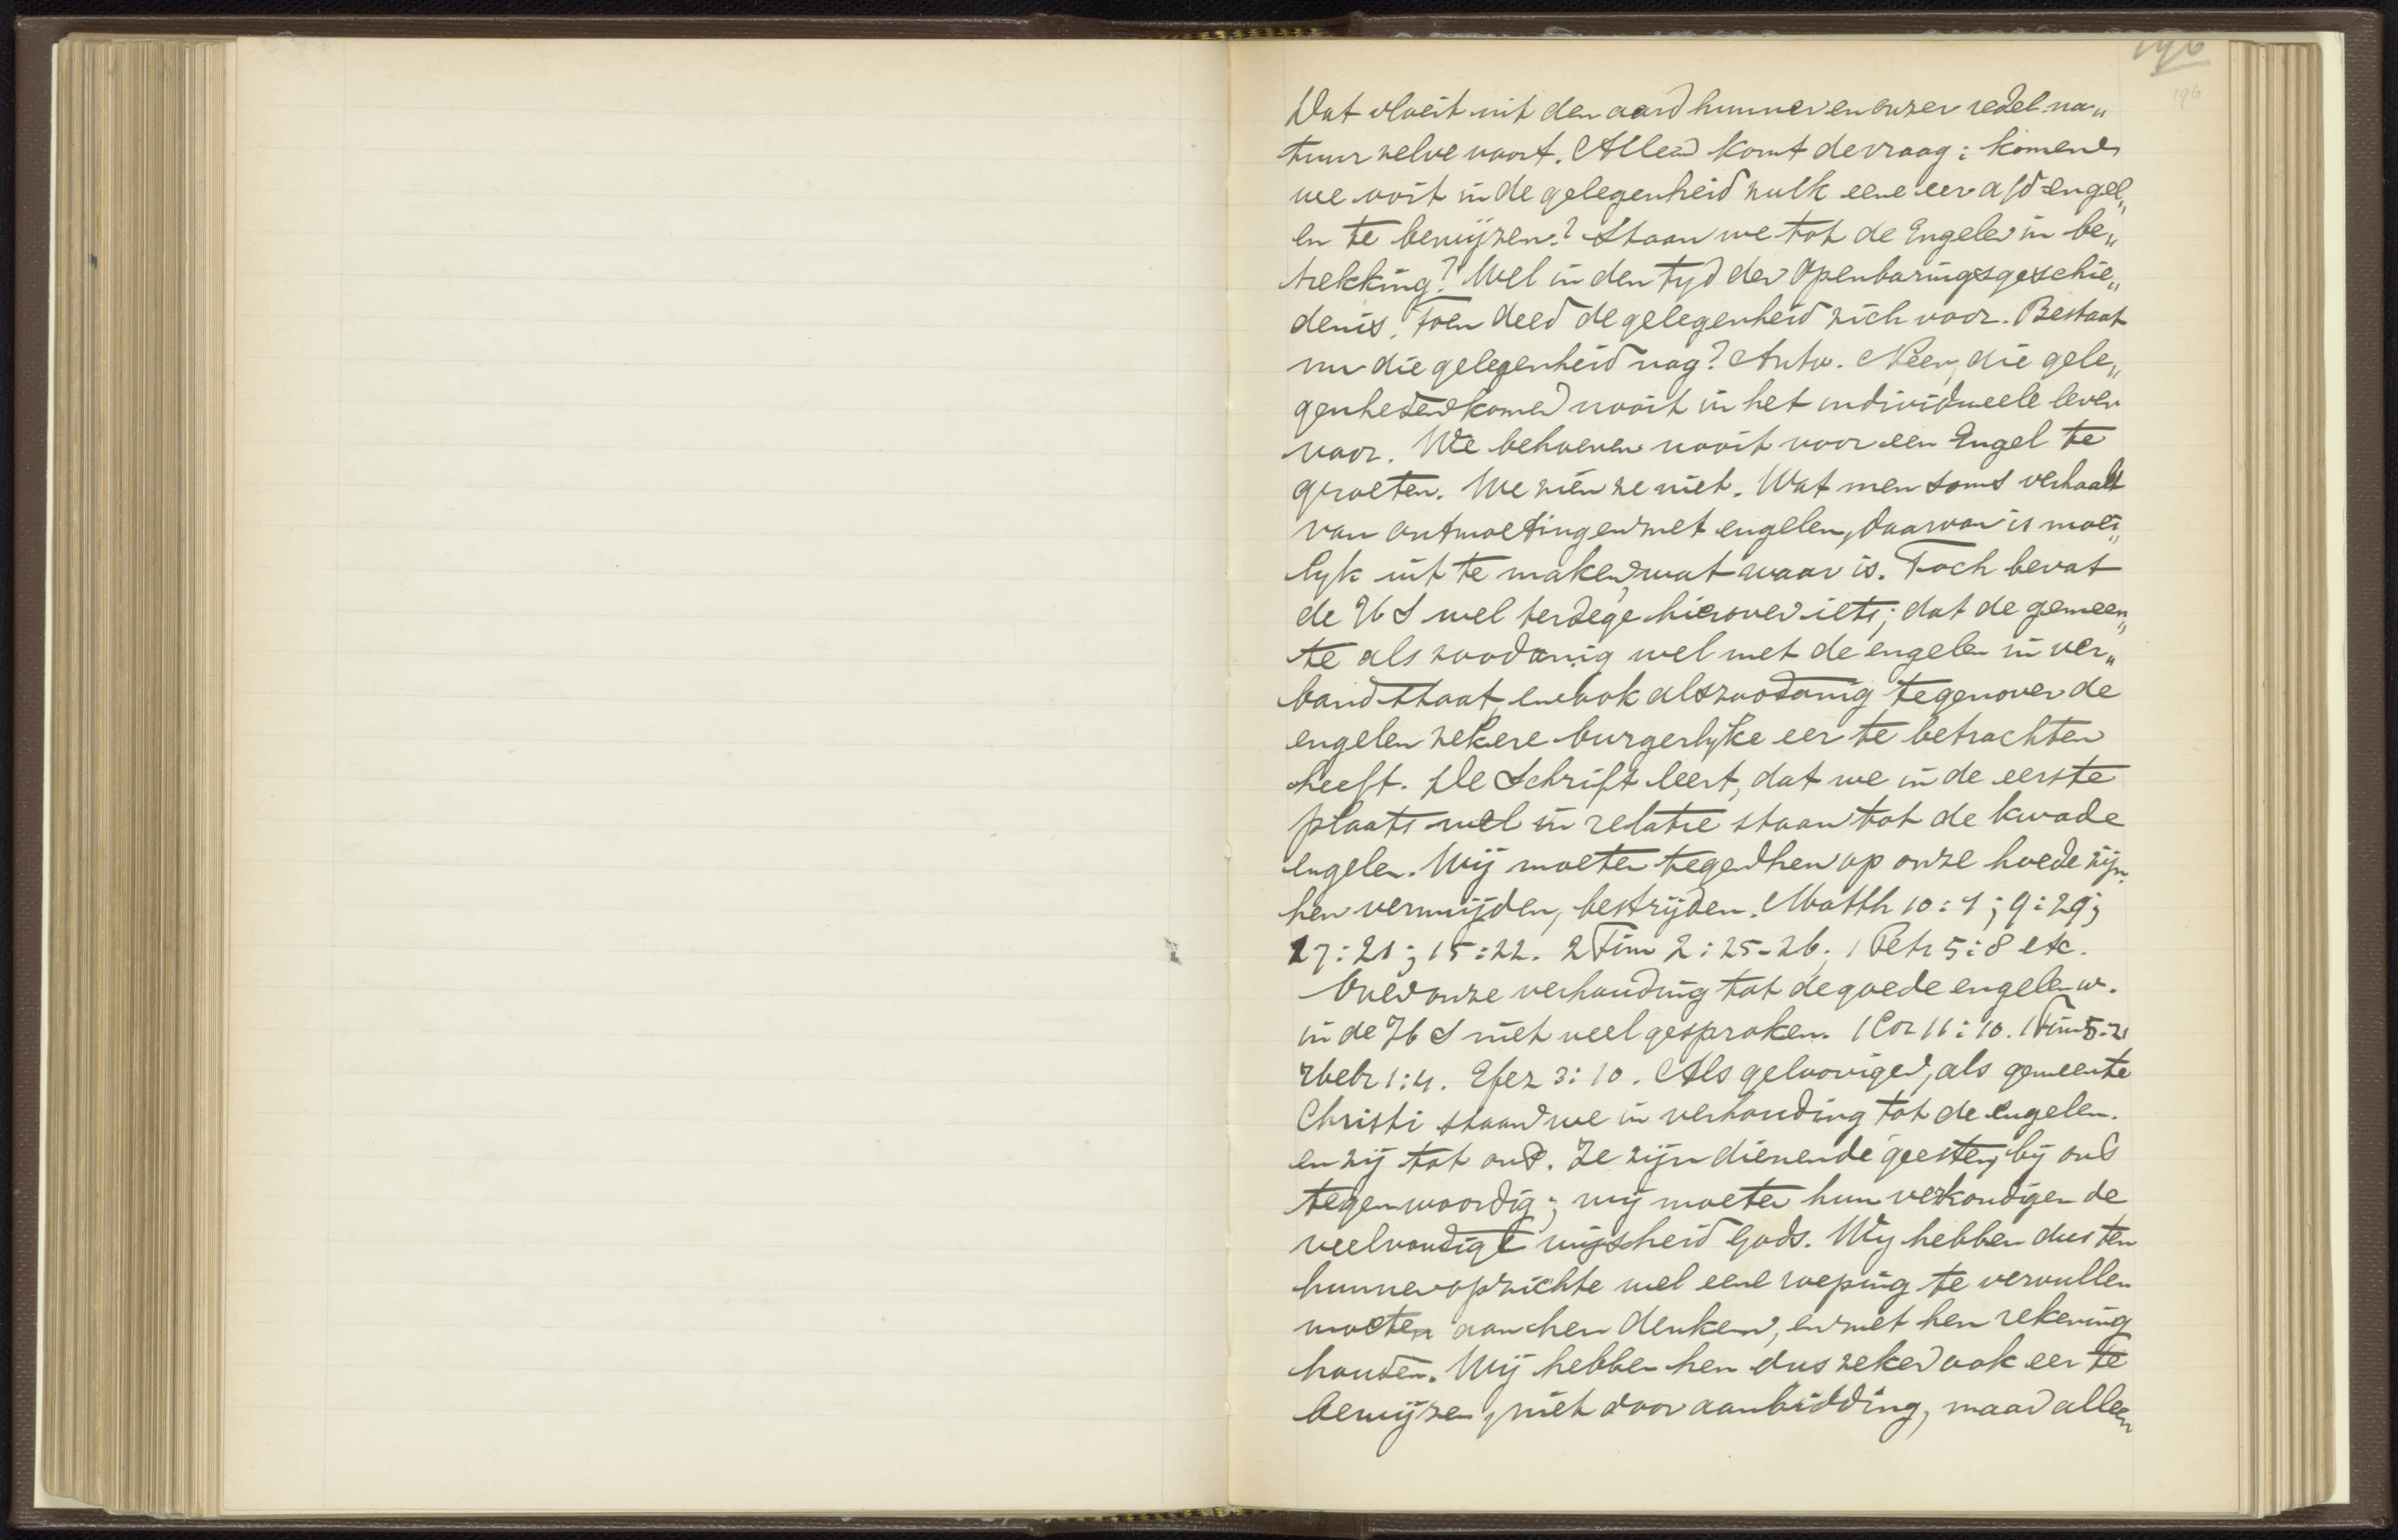 196
196
Dat vloeit uit den aard hunner en onzer redel. na„
tuur zelve voort. Alleen komt de vraag: komen
we ooit in de gelegenheid zulk eene eer a/d engel„
en te bewijzen? Staan we tot de Engelen in be„
trekking? Wel in den tyd der Openbaringsgeschie„
denis. Toen deed de gelegenheid zich voor. Bestaat
nu die gelegenheid nog? Antw. Neen, die gele„
genheden komen nooit in het individueele leven
voor. We behoeven nooit voor een Engel te
groeten. We zien ze niet. Wat men soms verhaalt
van ontmoetingen met engelen, daarvan is moei„
lyk uit te maken, wat waar is. Toch bevat
de H S wel terdege hierover iets; dat de gemeen„
te als zoodanig wel met de engelen in ver„
band staat, en ook als zoodanig tegenover de
engelen zekere burgerlyke eer te betrachten
heeft. De Schrift leert, dat we in de eerste
plaats wel in relatie staan tot de kwade
engelen. Wij moeten tegen hen op onze hoede zijn.
hen vermijden, bestrijden. Matth 10:1; 9:29;
17:21; 15:22. 2 Tim 2:25-26; 1 Petr 5:8 etc.
Over onze verhouding tot de goede engelen w.
in de H S niet veel gesproken. 1 Cor 11:10. 1 Tim 5:21
Hebr 1:4. Efez 3:10. Als geloovigen, als gemeente
Christi staan we in verhouding tot de engelen.
en zij tot ons. Ze zijn dienende geesten, bij ons
tegenwoordig; wij moeten hun verkondigen de
veelvoudige wijsheid Gods. Wy hebben dus ten
hunnen opzichte wel eene roeping te vervullen
moeten aan hen denken, en met hen rekening
houden. Wij hebben hen dus zeker ook eer te
bewijzen, niet door aanbidding, maar alleen